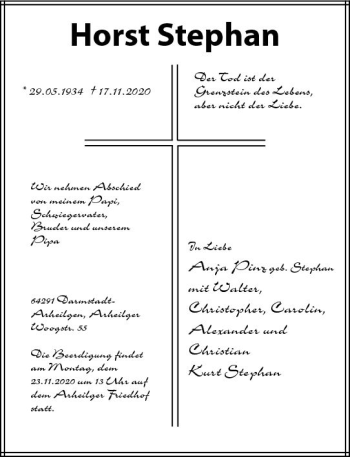 Horst Stephan
* 29.05.1934 † 17.11.2020
Der Tod ist der
Grenzstein des Lebens,
aber nicht der Liebe.
Wir nehmen Abschied
von meinem Papi,
Schwiegervater,
Bruder und unserem
Pipa
64291 Darmstadt-
Arheilgen, Arheilger
Woogstr. 55
Die Beerdigung findet
am Montag, dem
23.11.2020 um 13 Uhr auf
dem Arheilger Friedhof
statt.
In Liebe
Anja Pinz geb. Stephan
mit Walter,
Christopher, Carolin,
Alexander und
Christian
Kurt Stephan